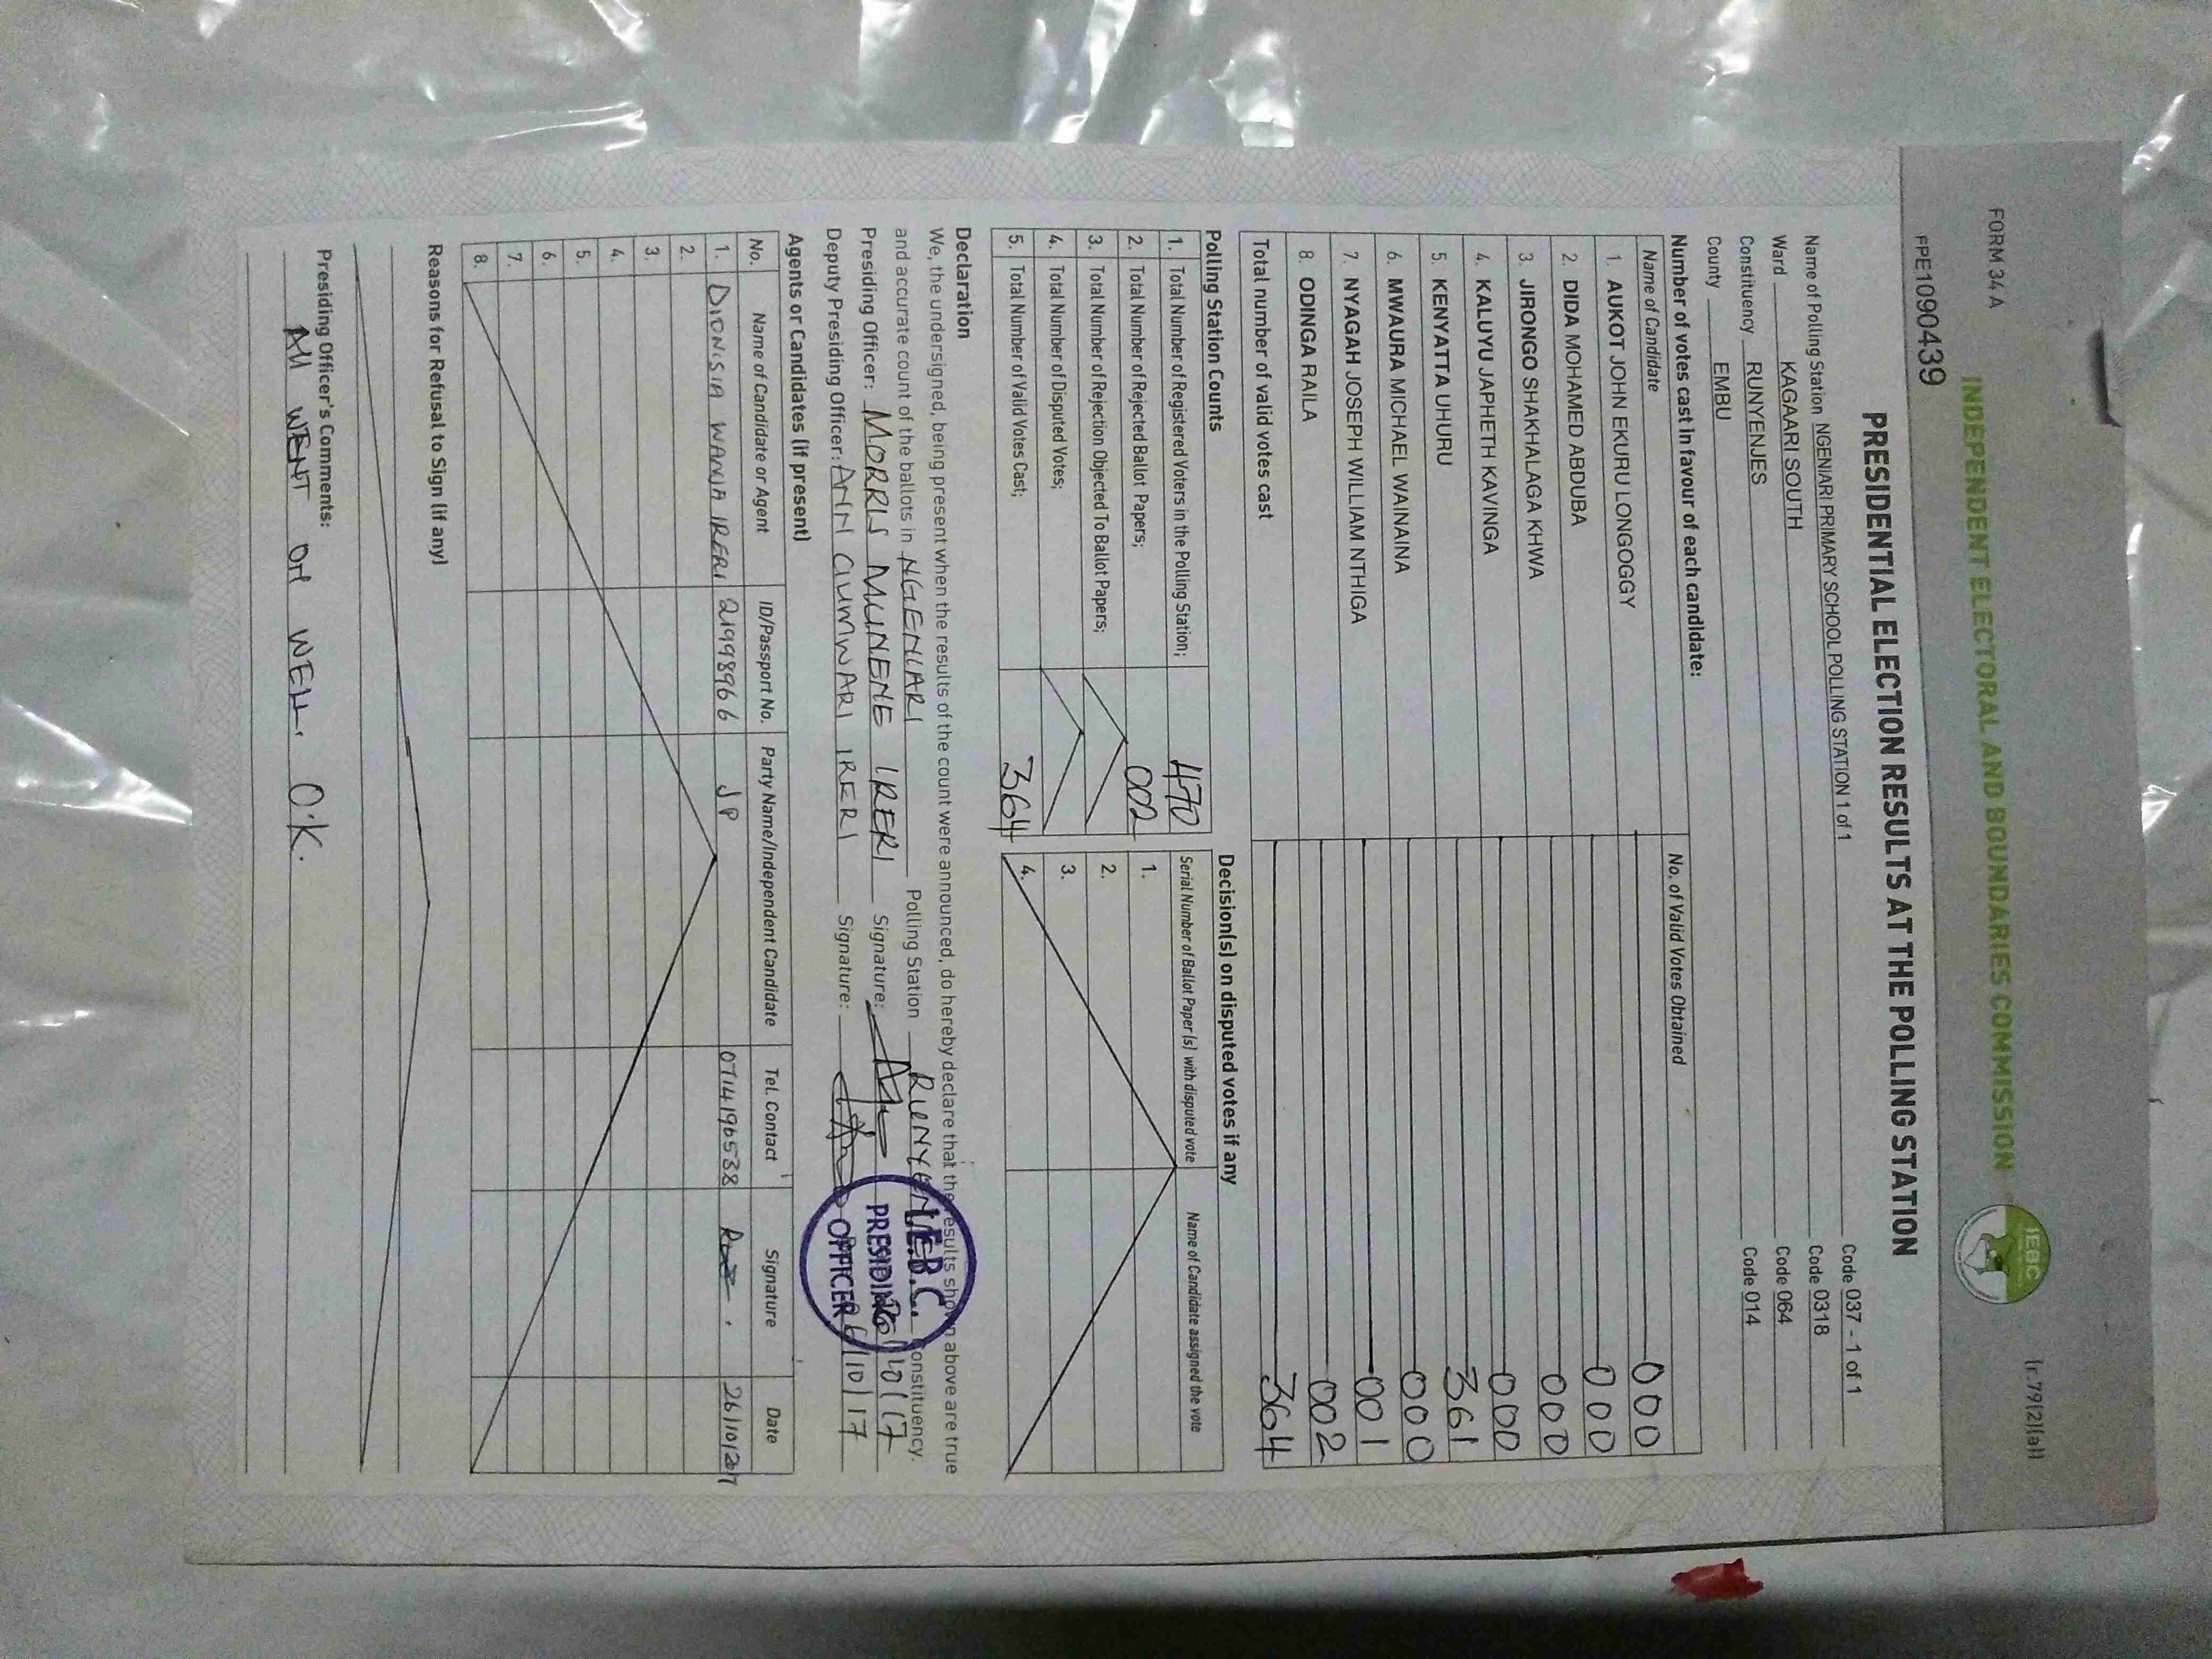 FORM 34 A
(r.79(2)(a))
INDEPENDENT ELECTORAL AND BOUNDARIES COMMISSION
IEBC
PPE1090439
PRESIDENTIAL ELECTION RESULTS AT THE POLING STATION
Name of Polling Station NGENIARI PRIMARY SCHOOL POLLING STATION 1 of 1 Code 037 - 1 of 1
Ward KAGAARI SOUTH Code 0318
Constituency RUNYENJES Code 064
County EMBU Code 014
Number of votes cast in favour of each candidate:
Name of Candidate No. of Valid Votes Obtained
1. AUKOT JOHN EKURU LONGOGGY 000
2. DIDA MOHAMED ABDUBA 000
3. JIRONGO SHAKHALAGA KHWA 000
4. KALUYU JAPHETH KAVINGA 000
5. KENYATTA UHURU 361
6. MWAURA MICHAEL WAINAINA 000
7. NYAGAH JOSEPH WILLIAM NTHIGA 001
8. ODINGA RAILA 002
Total number of valid votes cast 364
Polling Station Counts
1. Total Number of Registered Voters in the Polling Station; 470
2. Total Number of Rejected Ballot Papers; 002
3. Total Number of Rejection Objected To Ballot Papers;
4. Total Number of Disputed Votes;
5. Total Number of Valid Votes Cast; 364
Decision(s) on disputed votes if any
Serial Number of Ballot Paper(s) with disputed vote Name of Candidate assigned the vote
1.
2.
3.
4.
Declaration
We, the undersigned, being present when the results of the count were announced, do hereby declare that the results shown above are true
and accurate count of the ballots in NGENIARI Polling Station RUNYENJES Constituency.
Presiding Officer: MORRIS MUNENE IRERI Signature: 26/10/17
Deputy Presiding Officer: ANN CIUMWARI IRERI Signature: 26/10/17
I.E.B.C.
PRESIDING
OFFICER
Agents or Candidates (if present)
No. Name of Candidate or Agent ID/Passport No. Party Name/Independent Candidate Tel. Contact Signature Date
1. DIONISIA WANJA IRERI 21998966 JP 0714196538 26/10/2017
2.
3.
4.
5.
6.
7.
8.
Reasons for Refusal to Sign (if any)
Presiding Officer's Comments:
All WENT ON WELL. O.K.